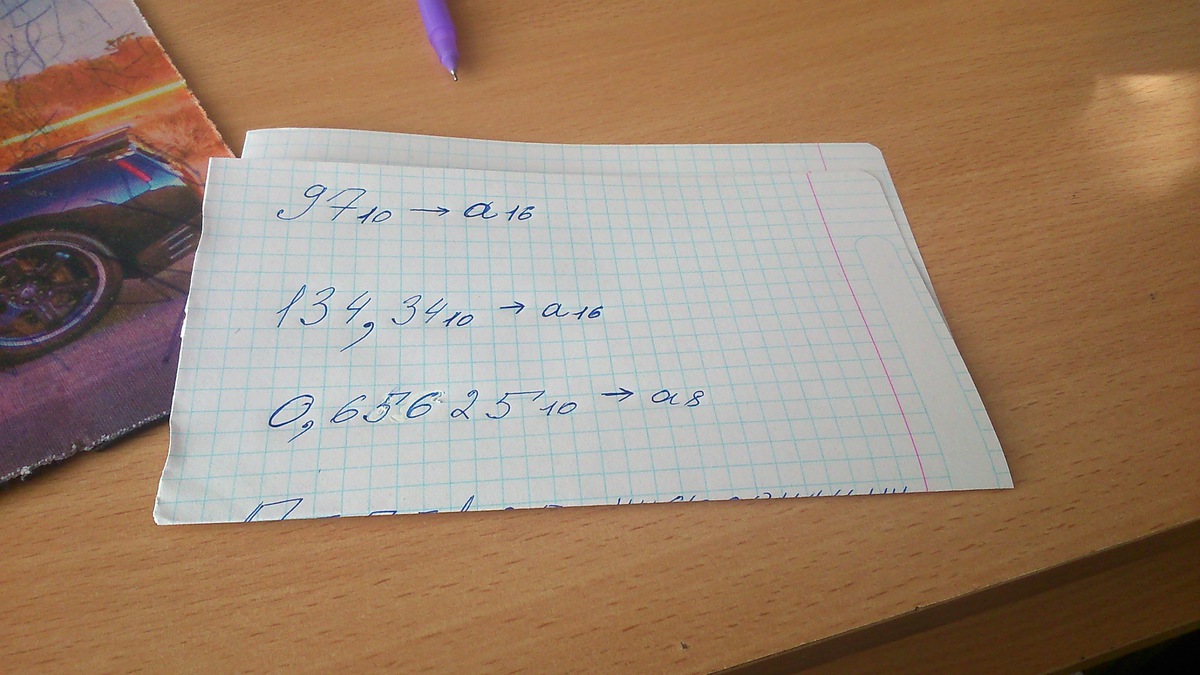 97₁₀ → a₁₆
134,34₁₀ → a₁₆
0,65625₁₀ → a₈